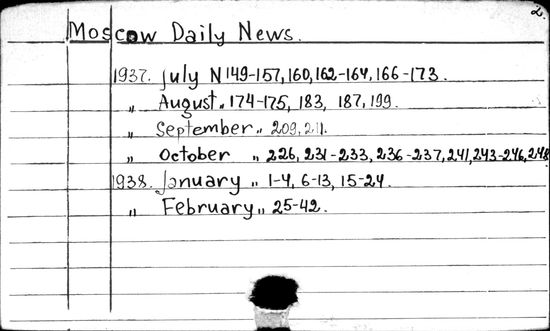 2.
Moscow Daily News.
1937. July N 149-157, 160, 162-164, 166-173.
„ August „ 174-175, 183, 187, 199.
„ September „ 209, 211.
„ October „ 226, 231-233, 236-237, 241, 243-246, 248
1938. January „ 1-4, 6-13, 15-24.
„ February „ 25-42.